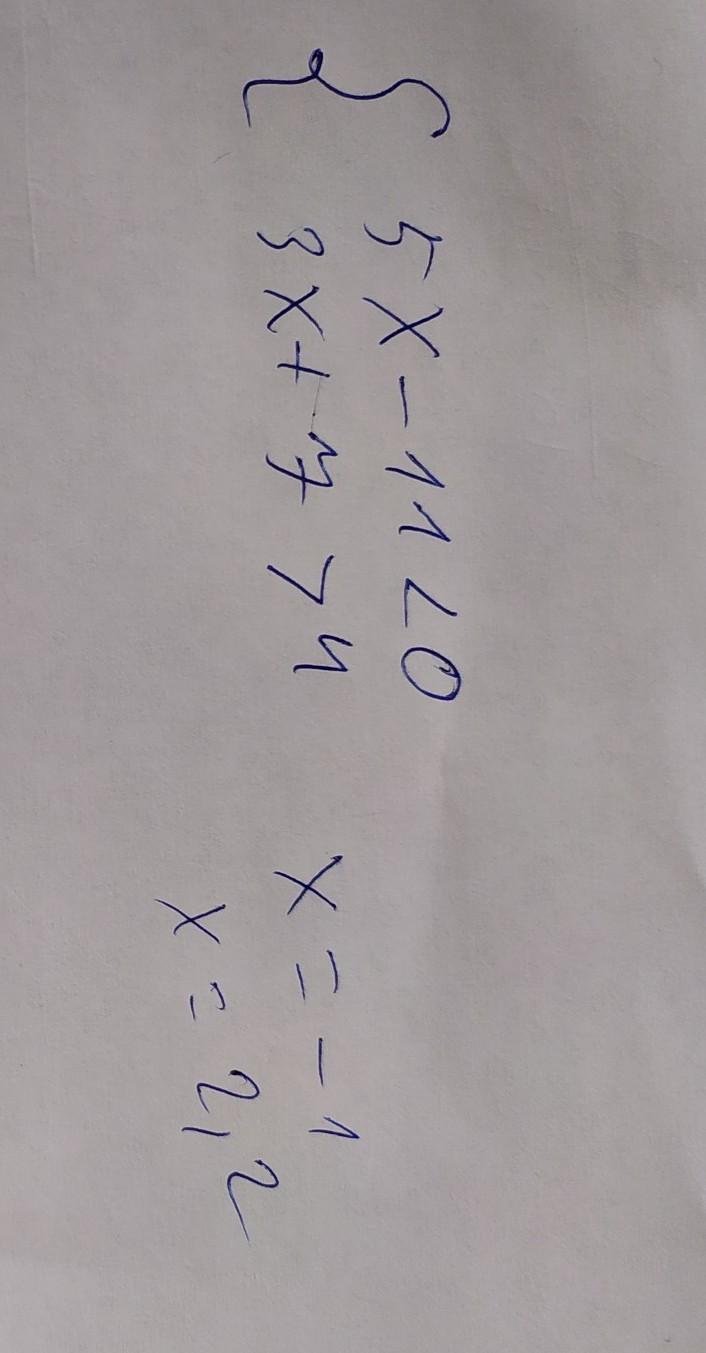 { 5x-11<0
3x+7>4
x=-1
x=2,2